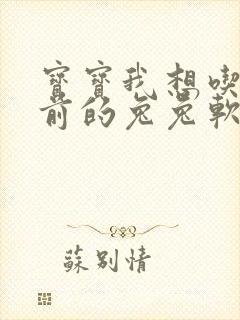 寶寶我想喫
前的兔兔軟
蘇別情